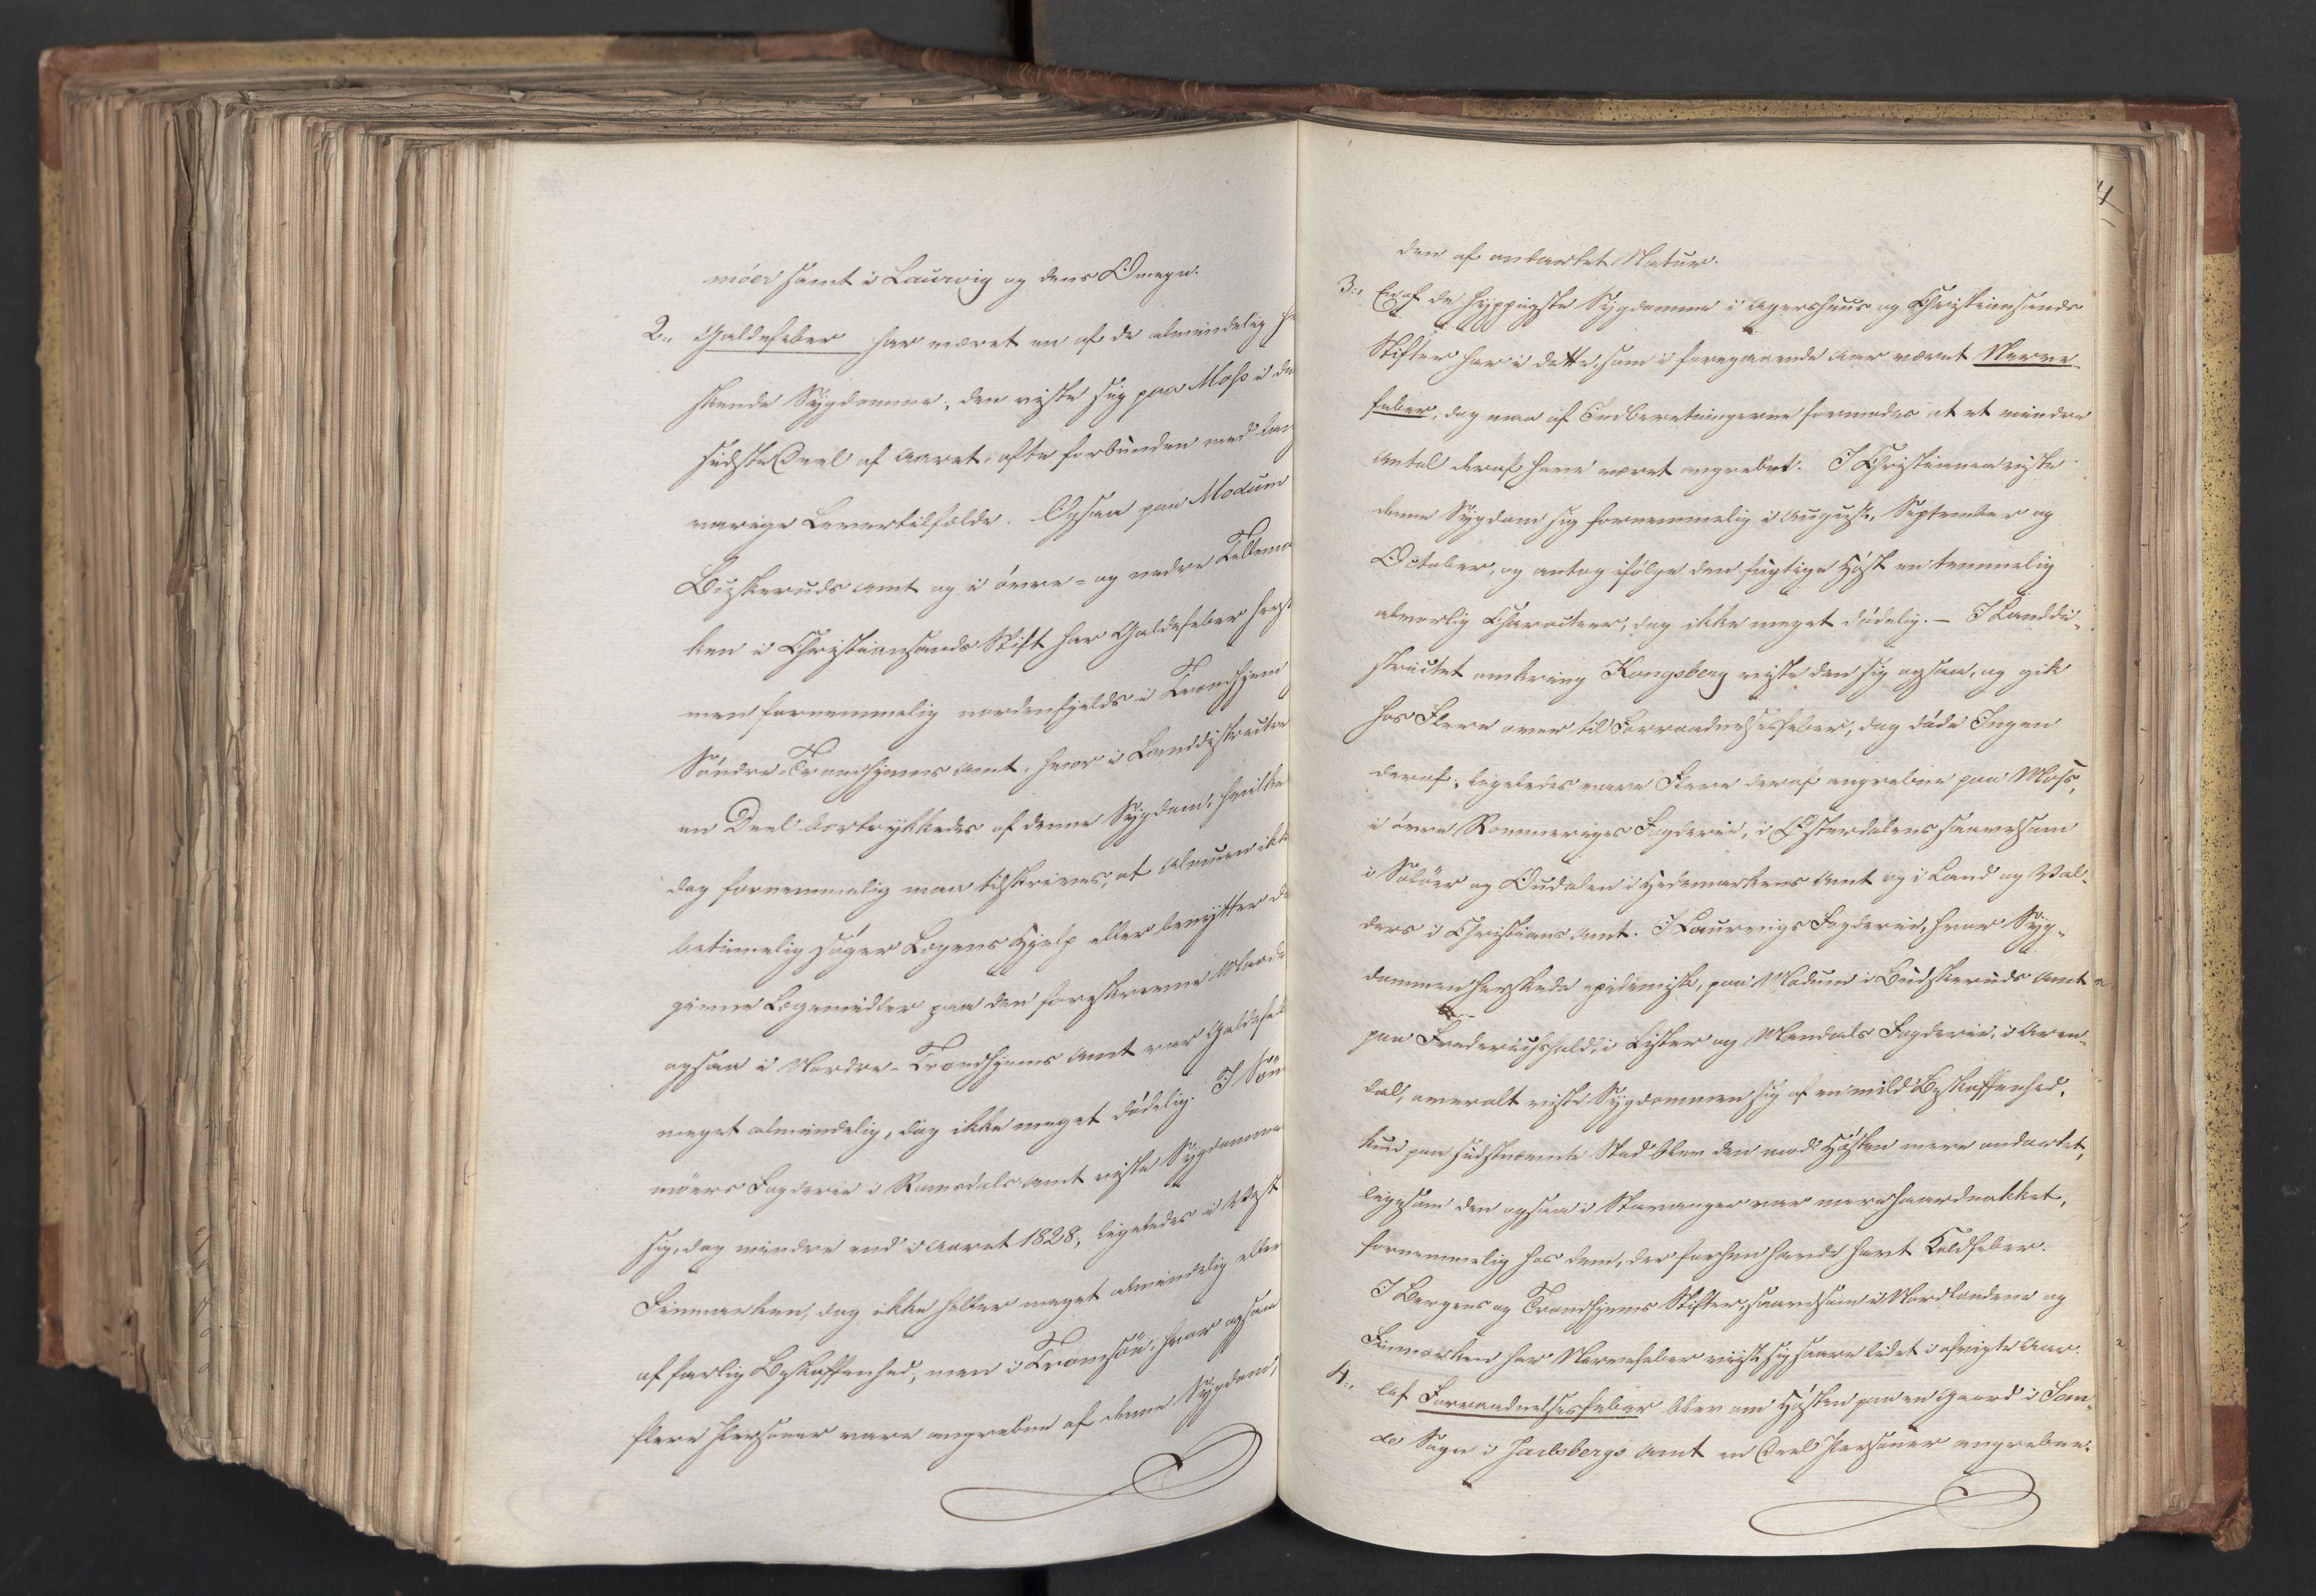 möer samt i Laurvig og dens Omegn.
2., Galdefeber har været en af de almindelig her
skende Sygdomme, den viste sig paa Moss i den
sidste Deel af Aaret, ofte forbunden med lang
varige Levertilfælde. Ogsaa paa Modum
Buskeruds Amt og i övre- og nedre Tellemar
ken i Christiansands Stift har Galdefeber hersk
men fornemmelig nordenfjelds i Trondhjem
Söndre-Trondhjems Amt, hvor i Landdistricter
en Deel bortrykkedes af denne Sygdom, hvilket
dog fornemmelig maa tilskrives, at Almuen ikke
betimelig söger Lægens Hjelp eller benytter de
givne Lægemidler paa den foreskrevne Maade
ogsaa i Nordre-Trondhjems Amt var Galdefeb
meget almindelig, dog ikke meget dödelig. I Sön
möers Fogderie i Romsdals Amt viste Sygdommen
sig, dog mindre end i Aaret 1828, ligeledes i Vest
Finmarken, dog ikke heller meget almindelig eller
af farlig Beskaffenhed, men i Tromsöe, hvor ogsaa
flere Personer vare angrebne af denne Sygdom,
4
den af ondartet Natur.
3., En af de hyppigste Sygdomme i Agershuus og Christiansands
Stifter har i dette, som i foregaaende Aar været Nerve
feber, dog maa af Indberetningerne formodes at et mindre
Antal deraf have været angrebet. I Christiania viste
denne Sygdom sig fornemmelig i August, September og
October, og antog ifölge den fugtige Höst en temmelig
alvorlig Characteer, dog ikke meget dödelig. – I Landdi-
strictet omkring Kongsberg viste den sig ogsaa, og gik
hos Flere over til Forraadnelsesfeber, dog döde Ingen
deraf, ligeledes vare Flere deraf angrebne paa Moss,
i övre Rommeriges Fogderie, i Österdalen saavelsom
i Solöer og Oudalen i Hedemarkens Amt og i Land og Val-
ders i Christians Amt. I Laurvigs Fogderie, hvor Syg-
dommen herskede epidemisk, paa Modum i Budskeruds Amt
paa Frederichshald, i Lister og Mandals Fogderie, i Aren-
dal, overalt viste Sygdommen sig af en mild Beskaffenhed,
kun paa sidstnævnte Sted blev den mod Hösten mere ondartet,
ligesom den ogsaa i Stavanger var mere haardnakket,
fornemmelig hos dem, der forhen havde havt Koldfeber.
I Bergens og Trondhjems Stifter, saavelsom i Nordlandene og
Finmarken har Nervefeber viist sig saare lidet i afvigte Aar.
4., Af Forraadnelsesfeber blev om Hösten paa en Gaard i San-
de Sogn i Jarlsbergs Amt en Deel Personer angrebne.